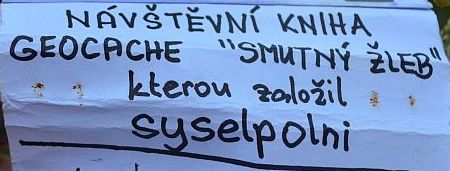 NÁVŠTĚVNÍ KNIHA
GEOCACHE "SMUTNÝ ŽLEB"
kterou založil
syselpolni